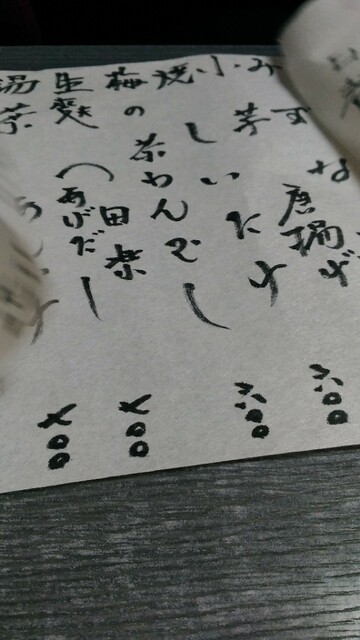 みずな
小芋唐揚げ 六〇〇
焼しいたけ 六〇〇
梅の茶わんむし 七〇〇
生麩（田楽
あげだし 七〇〇
湯葉